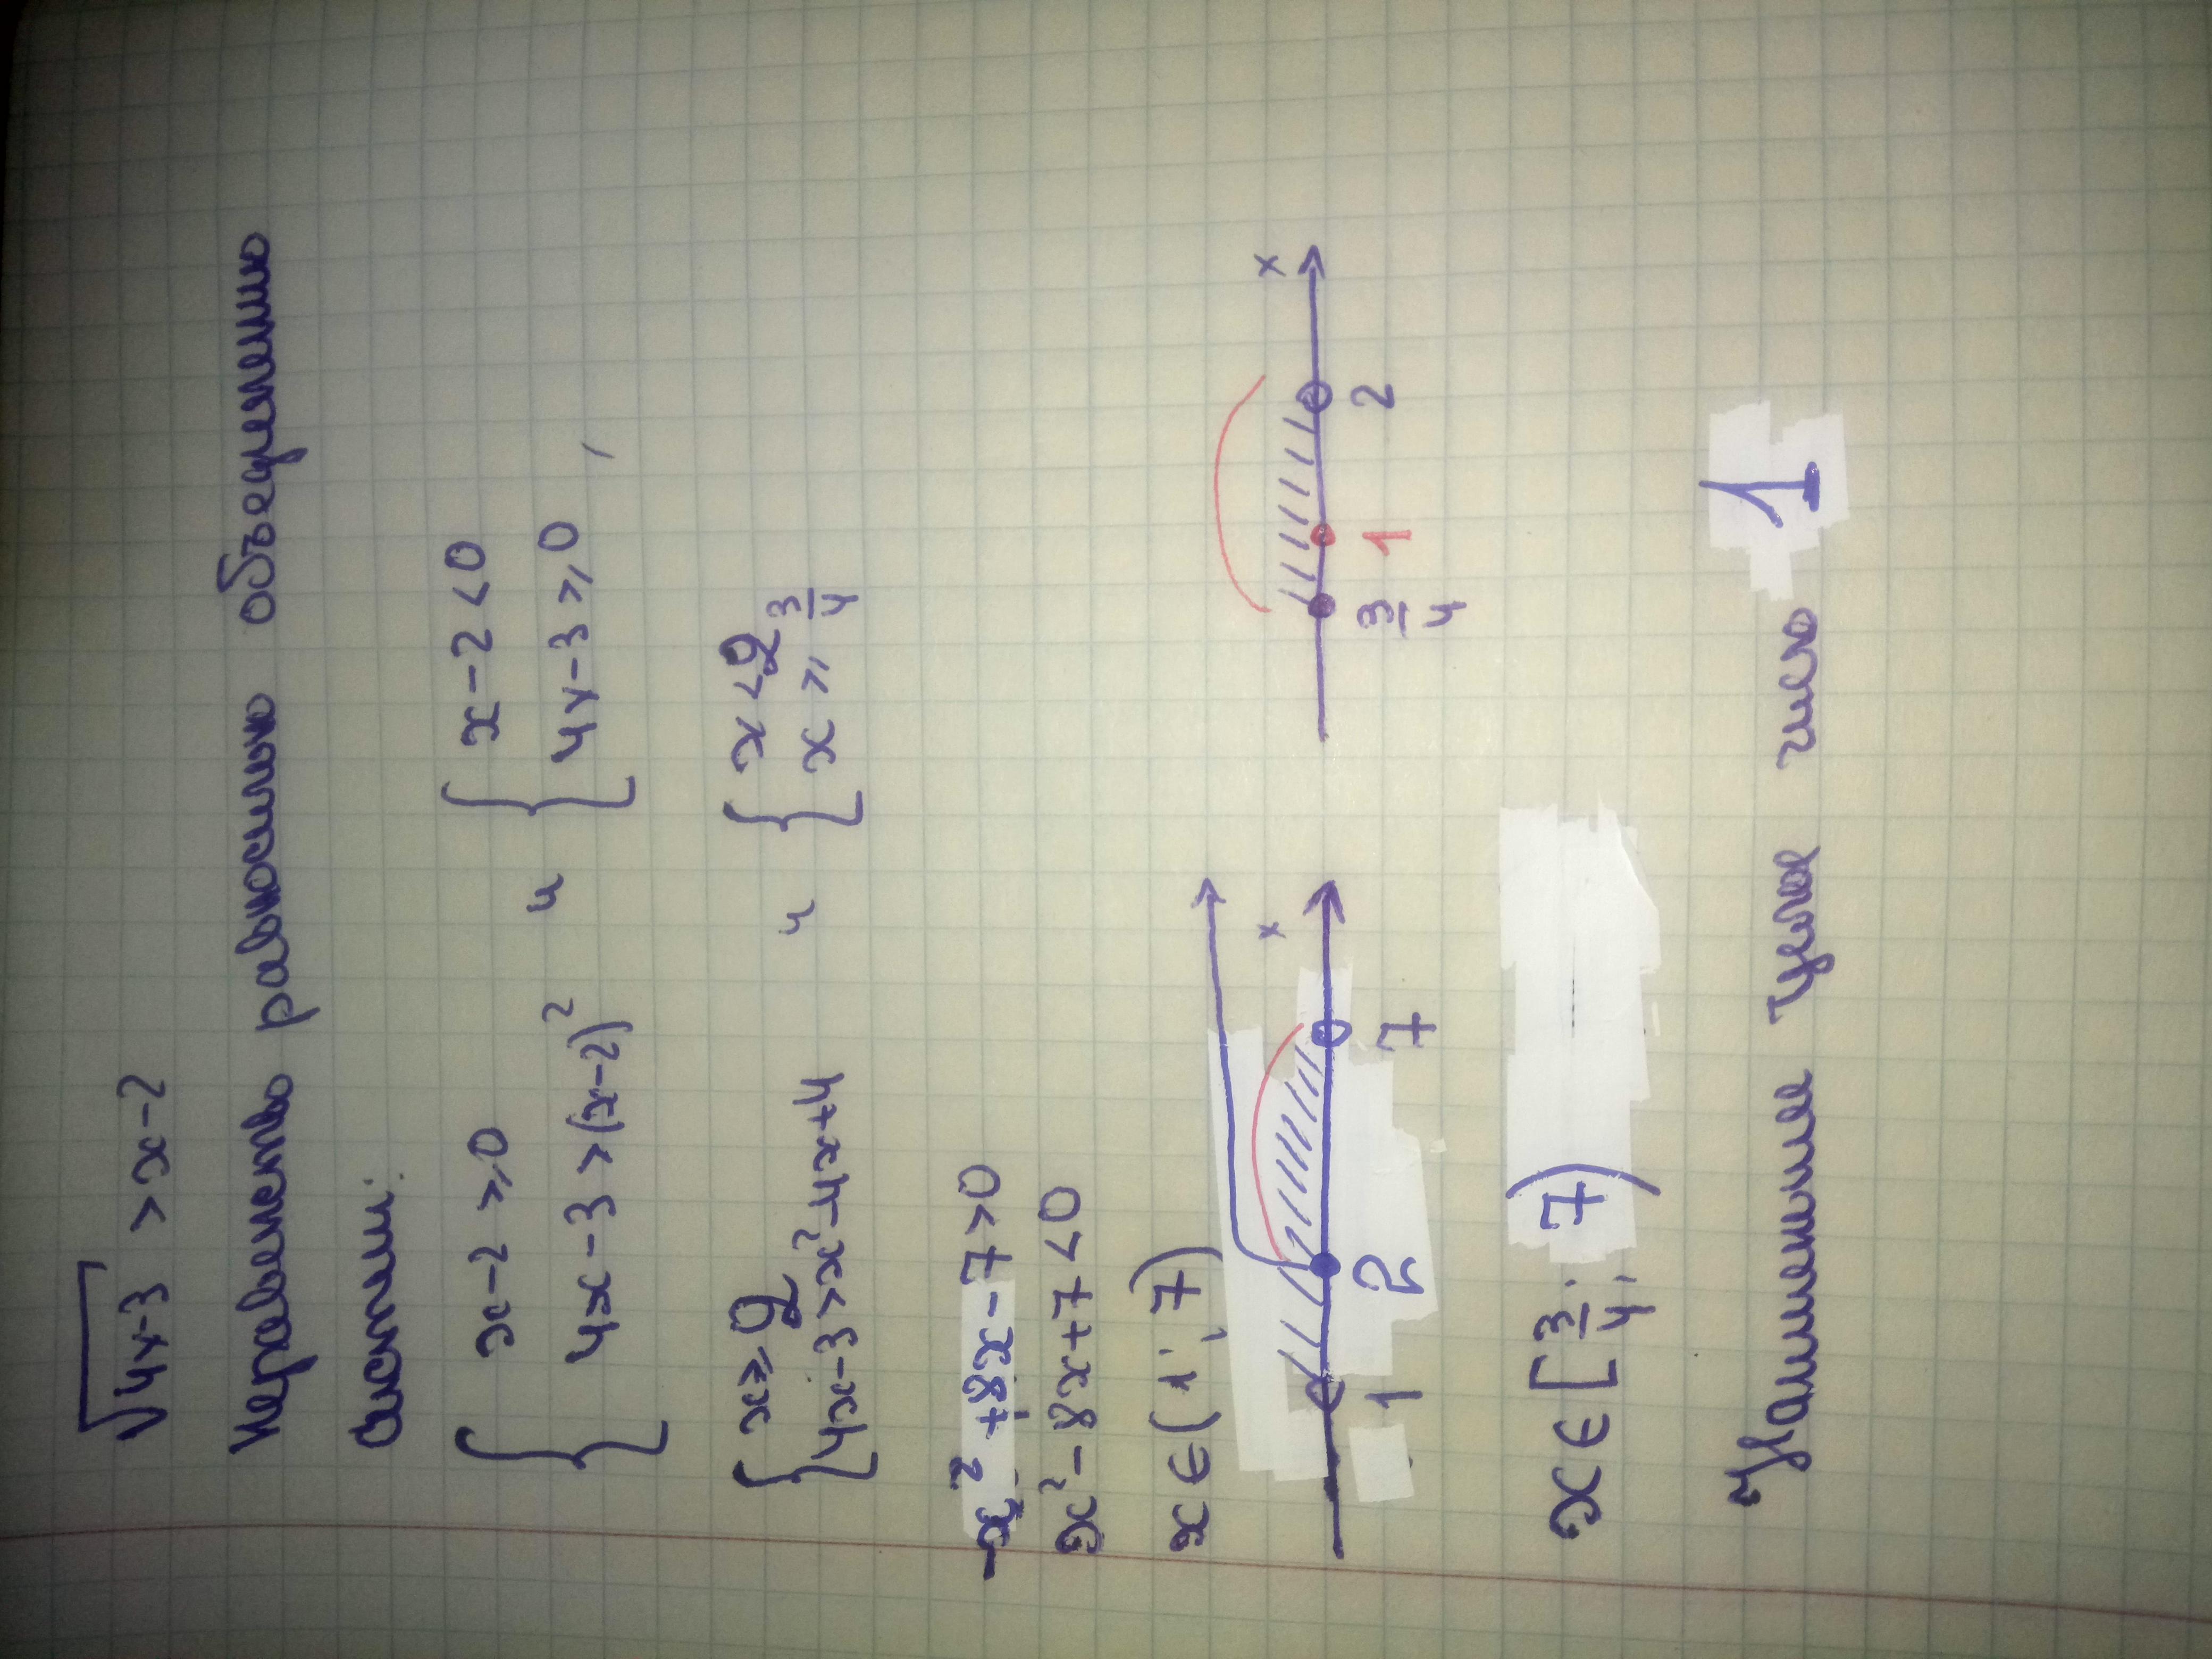 √4x-3 > x-2
Неравенство равносильно объединению
систем:
{ x-2 ≥ 0 и { x-2 < 0
4x-3 > (x-2)² 4x-3 ≥ 0 ,
{ x ≥ 2 и { x < 2
4x-3 > x²-4x+4 x ≥ 3/4
-x²+8x-7 > 0
x²-8x+7 < 0
x ∈ (1; 7)
x x
1 2 7 3/4 1 2
x ∈ [3/4; 7)
Наименьшее целое число 1